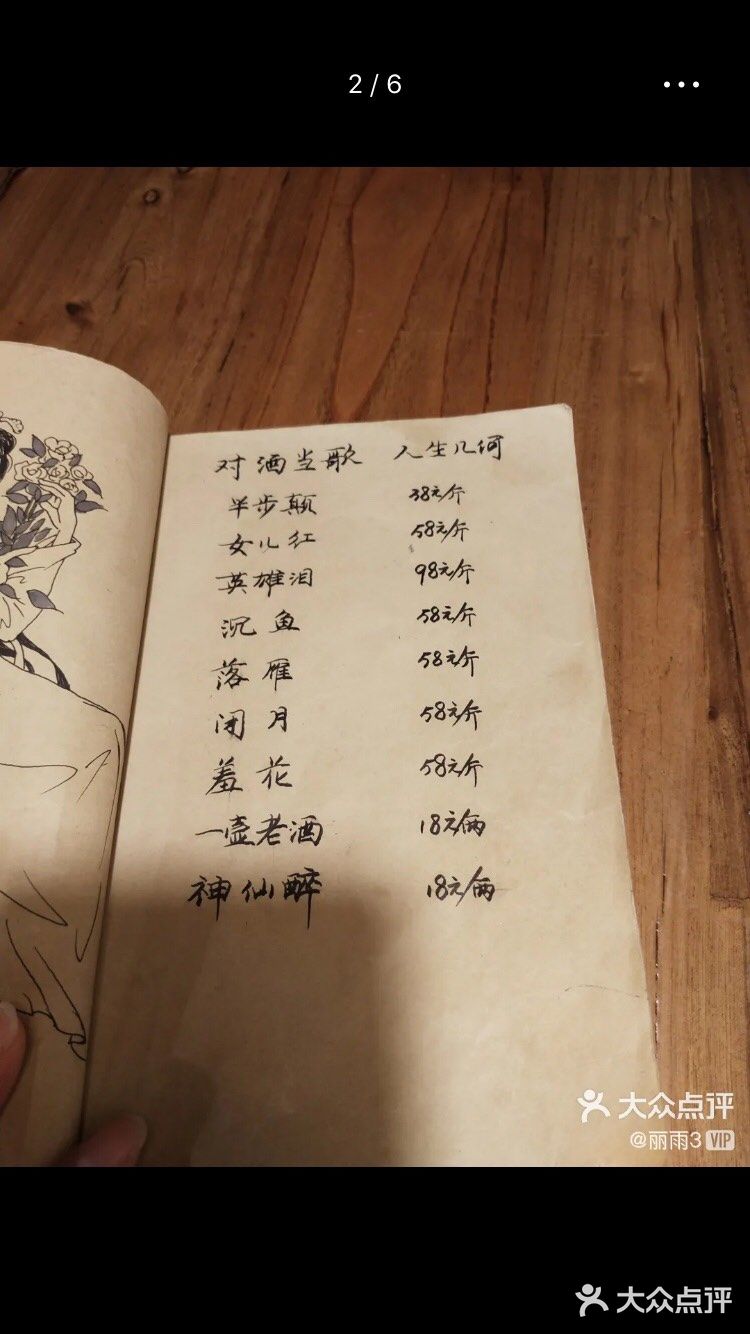 2 / 6
对酒当歌 人生几何
半步颠 38元/斤
女儿红 58元/斤
英雄泪 98元/斤
沉鱼 58元/斤
落雁 58元/斤
闭月 58元/斤
羞花 58元/斤
一壶老酒 18元/两
神仙醉 18元/两
大众点评
@丽雨3 VIP
大众点评